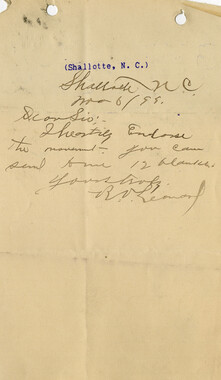 (Shallotte, N. C.)
Shallotte N C.
Nov 6/99.
Dear Sir:
I heartily Endorse
the movement - you can
send to me 12 blanks.
Yours truly,
R.D.